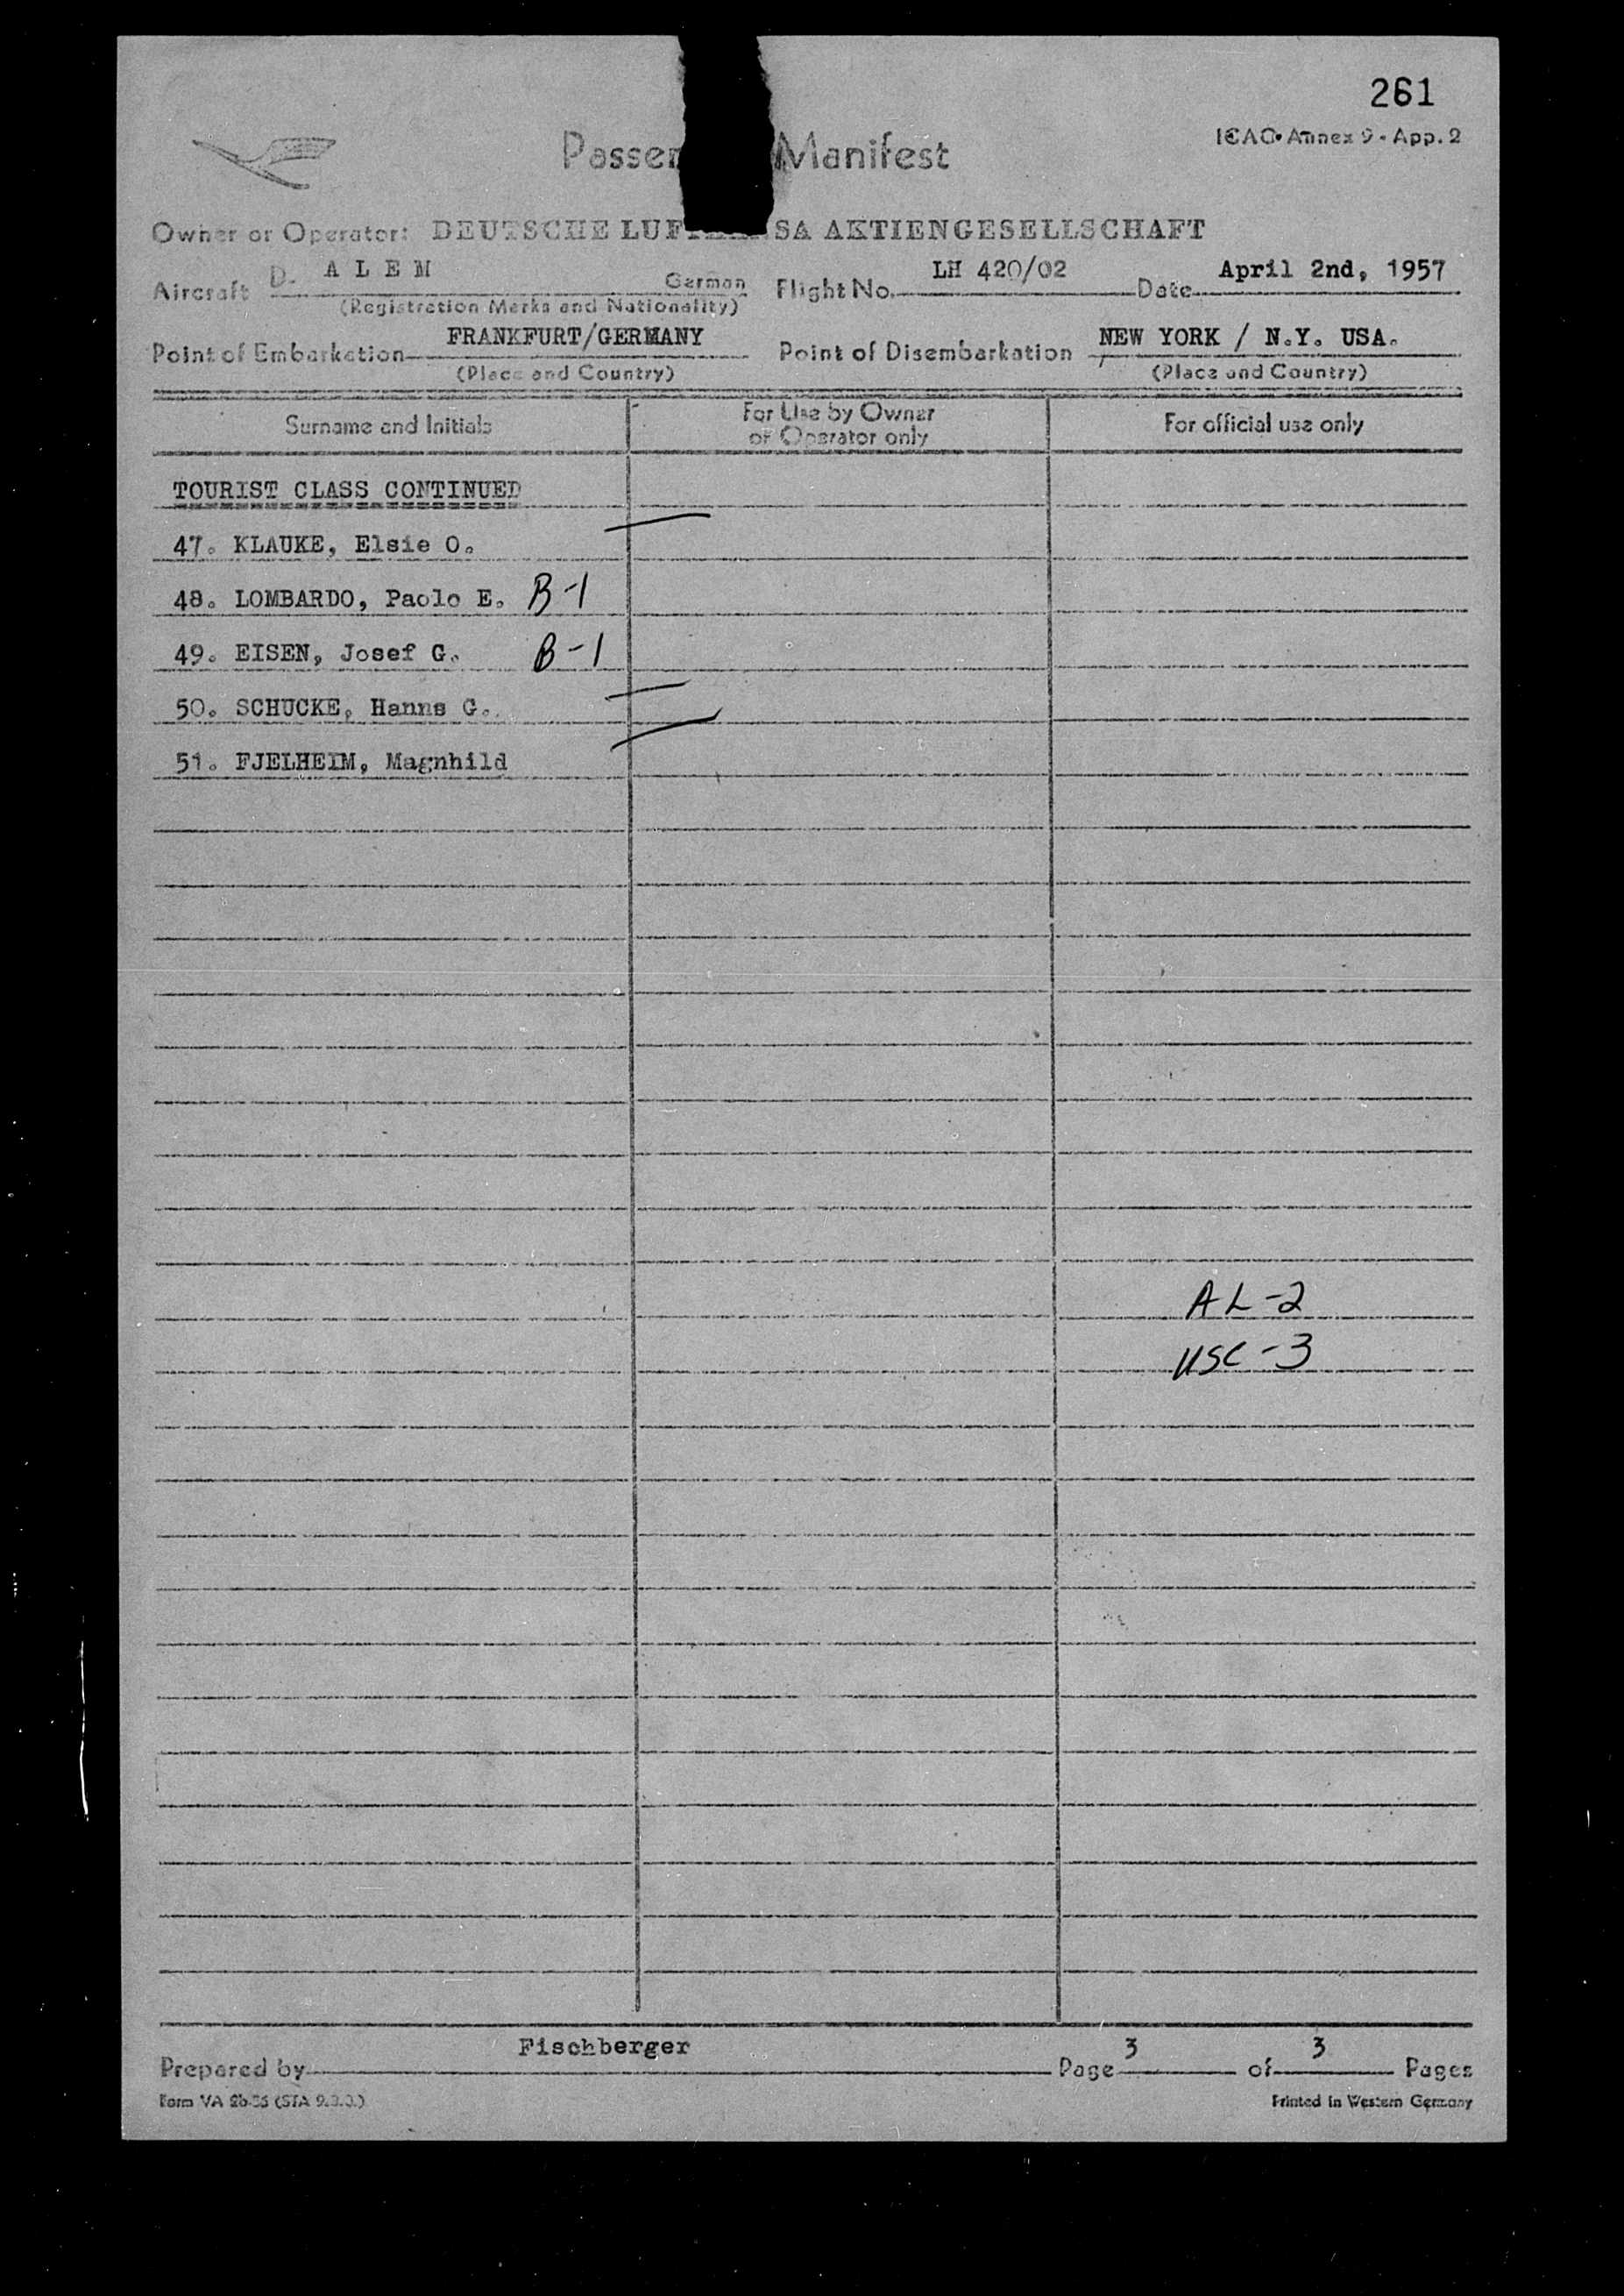 261
ICAO • Annex 9 - App. 2
Passen Manifest
Owner or Operator: DEUTSCHE LUFTHANSA AKTIENGESELLSCHAFT
Aircraft D- A L E M German Flight No. LH 420/02 Date April 2nd, 1957
(Registration Marks and Nationality)
Point of Embarkation FRANKFURT/GERMANY Point of Disembarkation NEW YORK / N.Y. USA.
(Place and Country) (Place and Country)
Surname and Initials For Use by Owner or Operator only For official use only
TOURIST CLASS CONTINUED
47. KLAUKE, Elsie O.
48. LOMBARDO, Paolo E. B-1
49. EISEN, Josef G. B-1
50. SCHUCKE, Hanns G.
51. FJELHEIM, Magnhild
AL-2
USC-3
Fischberger
Prepared by Page 3 of 3 Pages
Form VA Printed in Western Germany